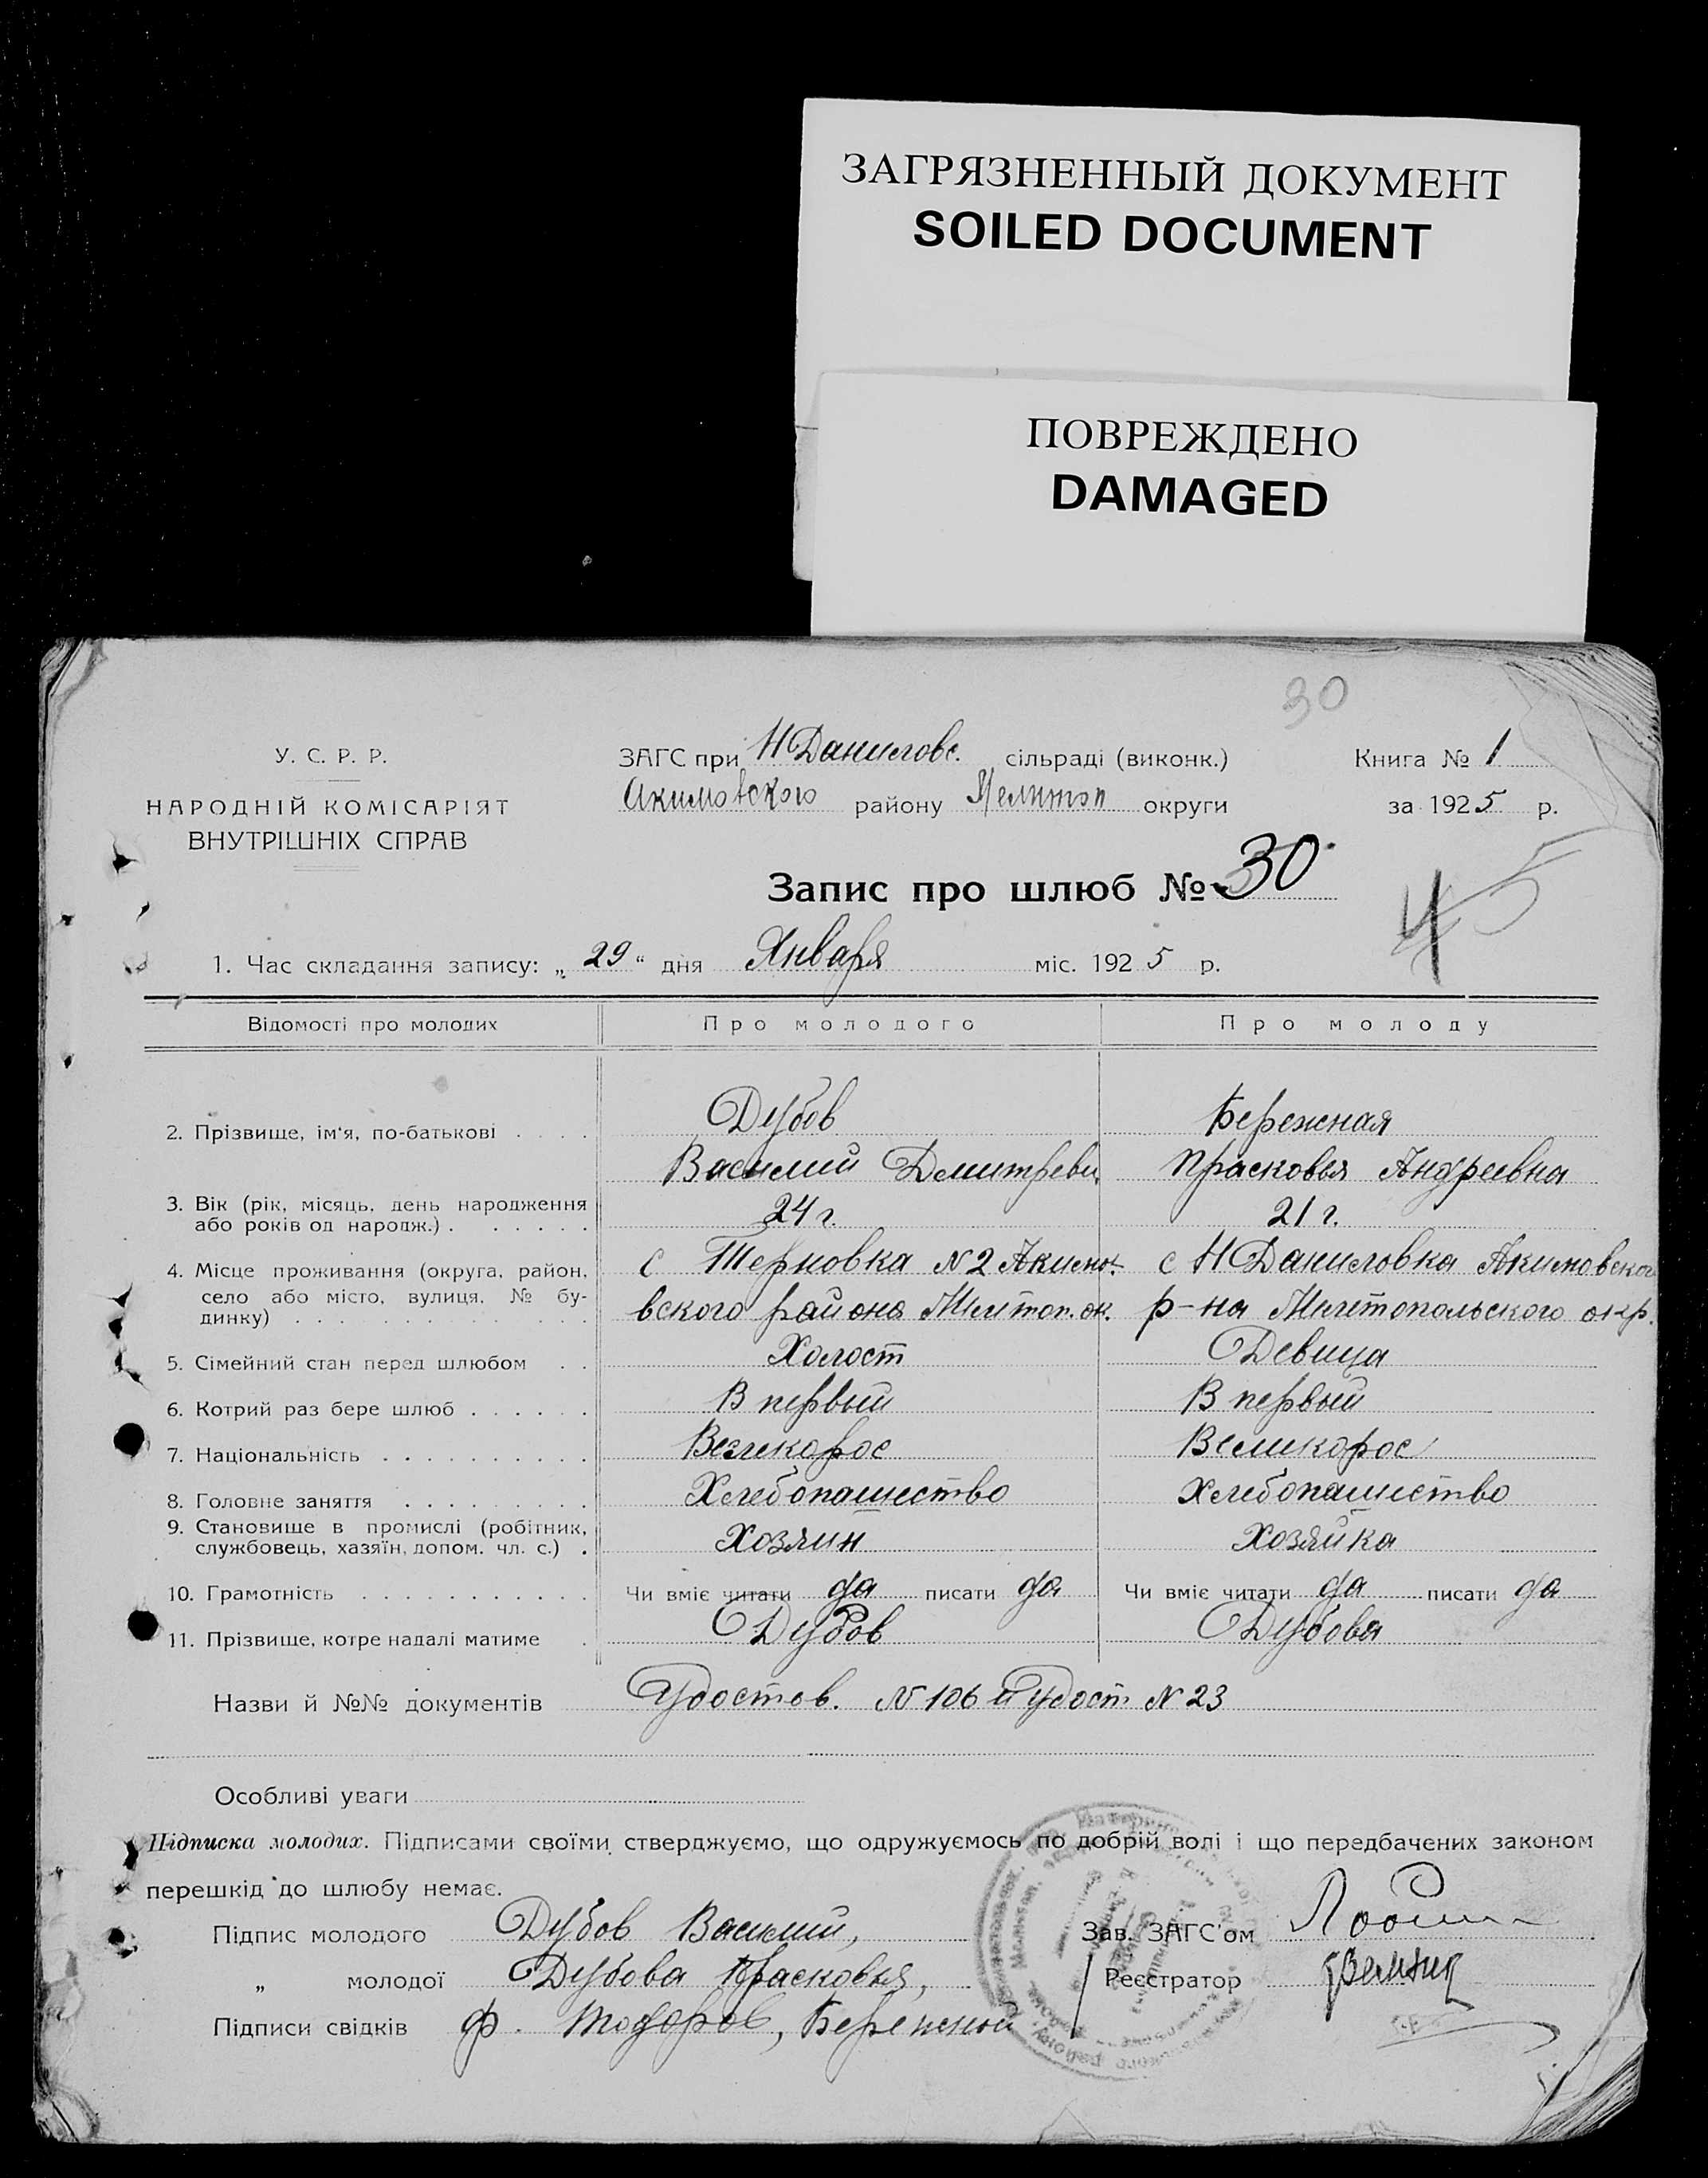 ЗАГРЯЗНЕННЫЙ ДОКУМЕНТ
SOILED DOCUMENT
ПОВРЕЖДЕНО
DAMAGED
30
У. С. Р. Р.
НАРОДНІЙ КОМІСАРІЯТ
ВНУТРІШНІХ СПРАВ
ЗАГС при Н Даниловс. сільраді (виконк.)
Акимовского району Мелитоп округи
Книга № 1
за 1925 р.
Запис про шлюб № 30
45
1. Час складання запису: „ 29 “ дня Января міс. 1925 р.
Відомості про молодих Про молодого Про молоду
2. Прізвище, ім'я, по-батькові . . . . Дубов Бережная
Василий Дмитреви Прасковья Андреевна
3. Вік (рік, місяць, день народження
або років од народж.) . . . . . . 24 г. 21 г.
4. Місце проживання (округа, район, с Терновка №2 Акимо- с Н Даниловка Акимовского
село або місто, вулиця, № бу- вского района Мелитоп. ок. р-на Мелитопольского окр.
динку)
5. Сімейний стан перед шлюбом . . Холост Девица
6. Котрий раз бере шлюб . . . . . . В первый В первый
7. Національність . . . . . . . . . . Великорос Великорос
8. Головне заняття . . . . . . . . . Хлебопашество Хлебопашество
9. Становище в промислі (робітник,
службовець, хазяїн, допом. чл. с.) . Хозяин Хозяйка
10. Грамотність . . . . . . . . . . . Чи вміє читати да писати да Чи вміє читати да писати да
11. Прізвище, котре надалі матиме . Дубов Дубова
Назви й №№ документів Удостов. № 106 и Удост № 23
Особливі уваги
Підписка молодих. Підписами своїми стверджуємо, що одружуємось по добрій волі і що передбачених законом
перешкід до шлюбу немає.
Підпис молодого Дубов Василий,
Зав. ЗАГС'ом
„ молодої Дубова Прасковья,
Реєстратор
Підписи свідків Ф. Тодоров, Бережной